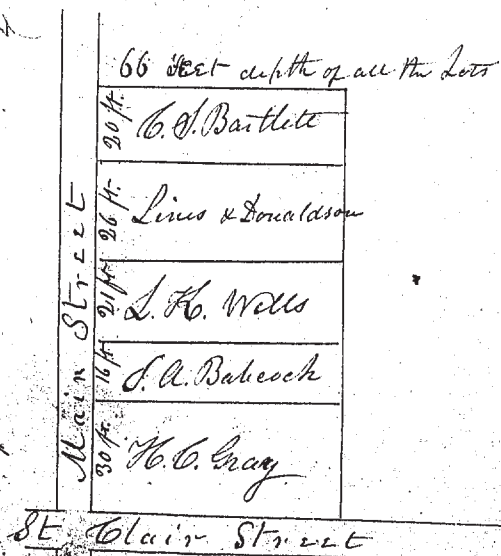 66 feet depth of all the Lots
20 ft. C. S. Bartlett
26 ft. Lines & Donaldson
21 ft. L. H. Wells
16 ft. S. A. Babcock
30 ft. H. C. Gray
Main Street
St Clair Street